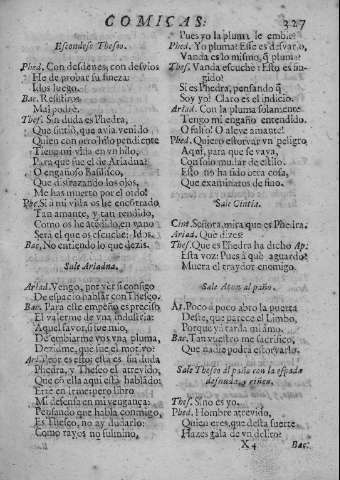 COMICAS.
327
Escondese Theseo.
Phed. Con desdenes, con desvios
He de probar su fineza:
Idos luego.
Bac. Resistiros
Mal podrè.
Thes. Sin duda es Phedra,
Que sintiò, que avia venido
Quien con otro hilo pendiente
Tiene mi vida en vn hilo,
Para que fue el de Ariadna?
O engañoso Basilisco,
Que disfrazando los ojos,
Me has muerto por el oìdo!
Phe. Si à mi vida os he encontrado
Tan amante, y tan rendido,
Como os he acogido en vano
Serà el que os escuche: Idos.
Bac. No entiendo lo que dezis.
Sale Ariadna.
Ariad. Vengo, por vèr si consigo
De espacio hablar con Theseo.
Bac. Para este empeño es preciso
El valerme de vna industria:
Aquel favor, si fue mio,
De embiarme vos vna pluma,
Dezidme, que fue el motivo?
Ari. Peor es esto: esta es sin duda
Phedra, y Theseo el atrevido,
Que con ella aqui està hablando:
Errè en
Mi defensa en mi vengança:
Pensando que habla conmigo,
Es Theseo, no ay dudarlo:
Como rayos no fulmino,
Pues yo la pluma le embiè?
Phed. Yo pluma? Esse es desvario,
Vanda es lo mismo, q pluma?
Thes. Vanda escuchè: Esto es fingido!
Si es Phedra, pensando q
Soy yo! Claro es el indicio.
Ariad. Con la pluma solamente
Tengo mi engaño entendido.
O falso! O aleve amante!
Phed. Quiero estorvar vn peligro
Aqui, para que se vaya,
Con solo mudar de estilo.
Esto no ha sido otra cosa,
Que examinaros de fino.
Sale Cintia.
Cint. Señora, mira que es Phedra.
Ariad. Què dizes?
Thes. Que es Phedra ha dicho Ap.
Esta voz: Pues à què aguardo?
Muera el traydor enemigo.
Sale Aton al paño.
At. Poco à poco abro la puerta
Deste, que parece el Limbo,
Porque yà tarda mi amo.
Bac. Tan vuestro me sacrifico,
Que nadie podrà estorvarlo.
Sale Theseo al paño con la espada
desnuda, y riñen.
Thes. Sino es yo.
Phed. Hombre atrevido,
Quien eres, que desta suerte
Hazes gala de vn delito?
X 4
Bac.